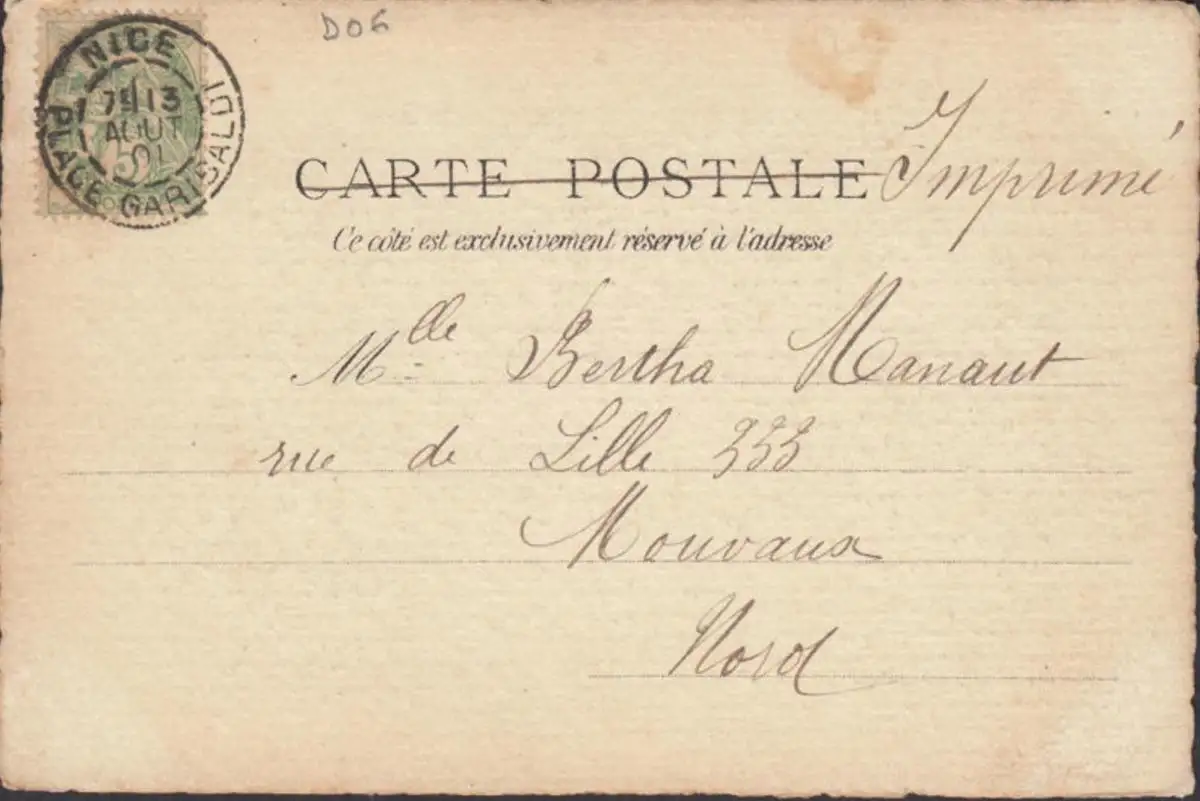 D06
NICE
7E 13
AOUT
01
PLACE GARIBALDI
CARTE POSTALE Imprimé
Ce côté est exclusivement réservé à l'adresse
Mlle Bertha Manaut
rue de Lille 333
Mouvaux
Nord